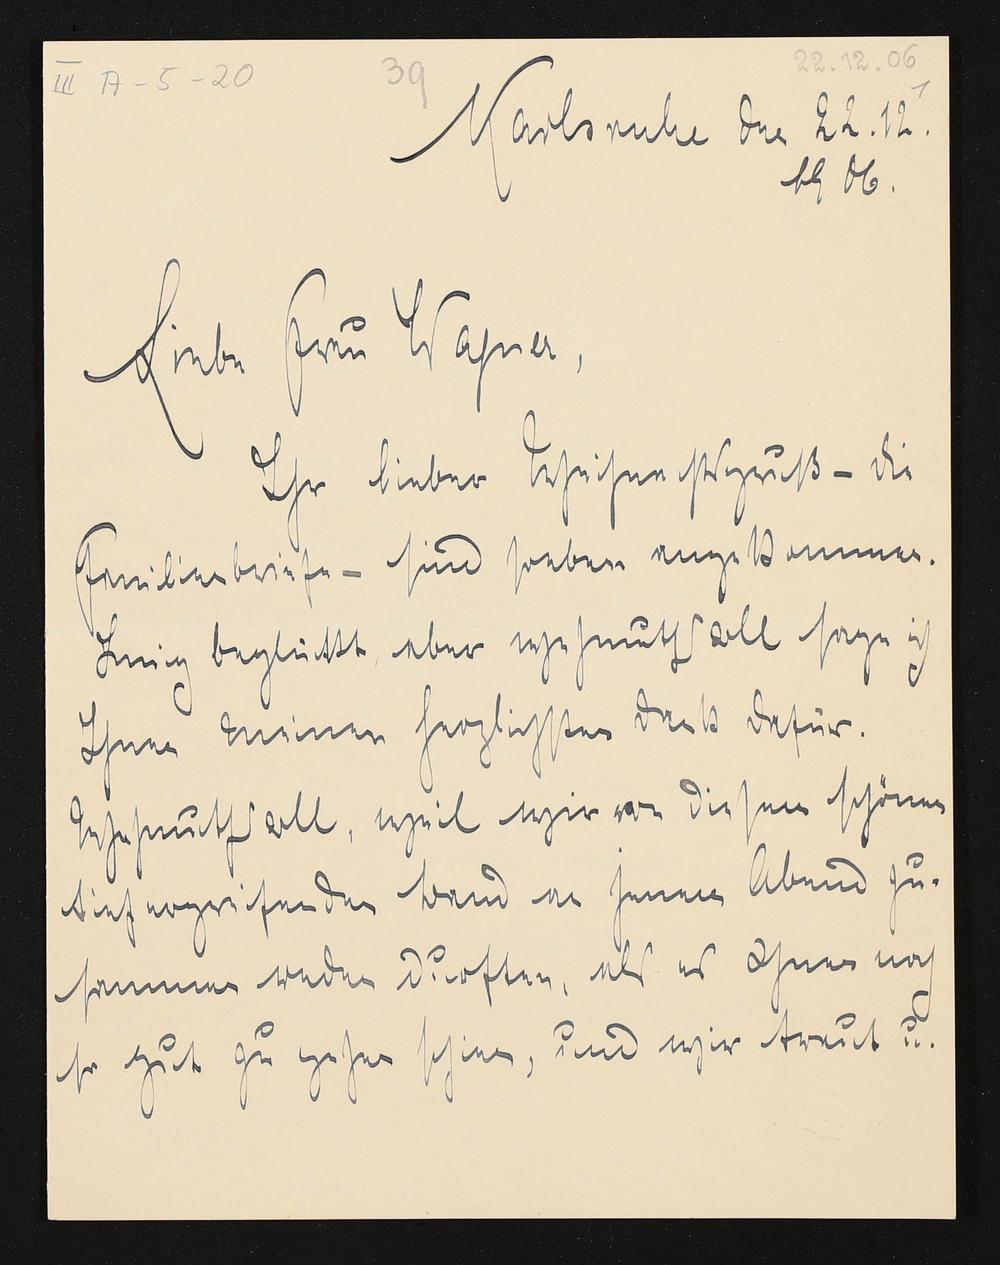 III A-5-20 39 22.12.06
1
Karlsruhe den 22.12.
1906.
Liebe Frau Wagner,
Ihr lieber Weihnachtsgruß – die
Familienbriefe – sind soeben angekommen.
Innig beglückt, aber wehmuthsvoll sage ich
Ihnen meinen herzlichsten Dank dafür.
Wehmuthsvoll, weil wir von diesem schönen
tiefergreifenden Band an jenem Abend zu-
sammen reden durften, als es Ihnen noch
so gut zu gehen schien, und wir traut u.